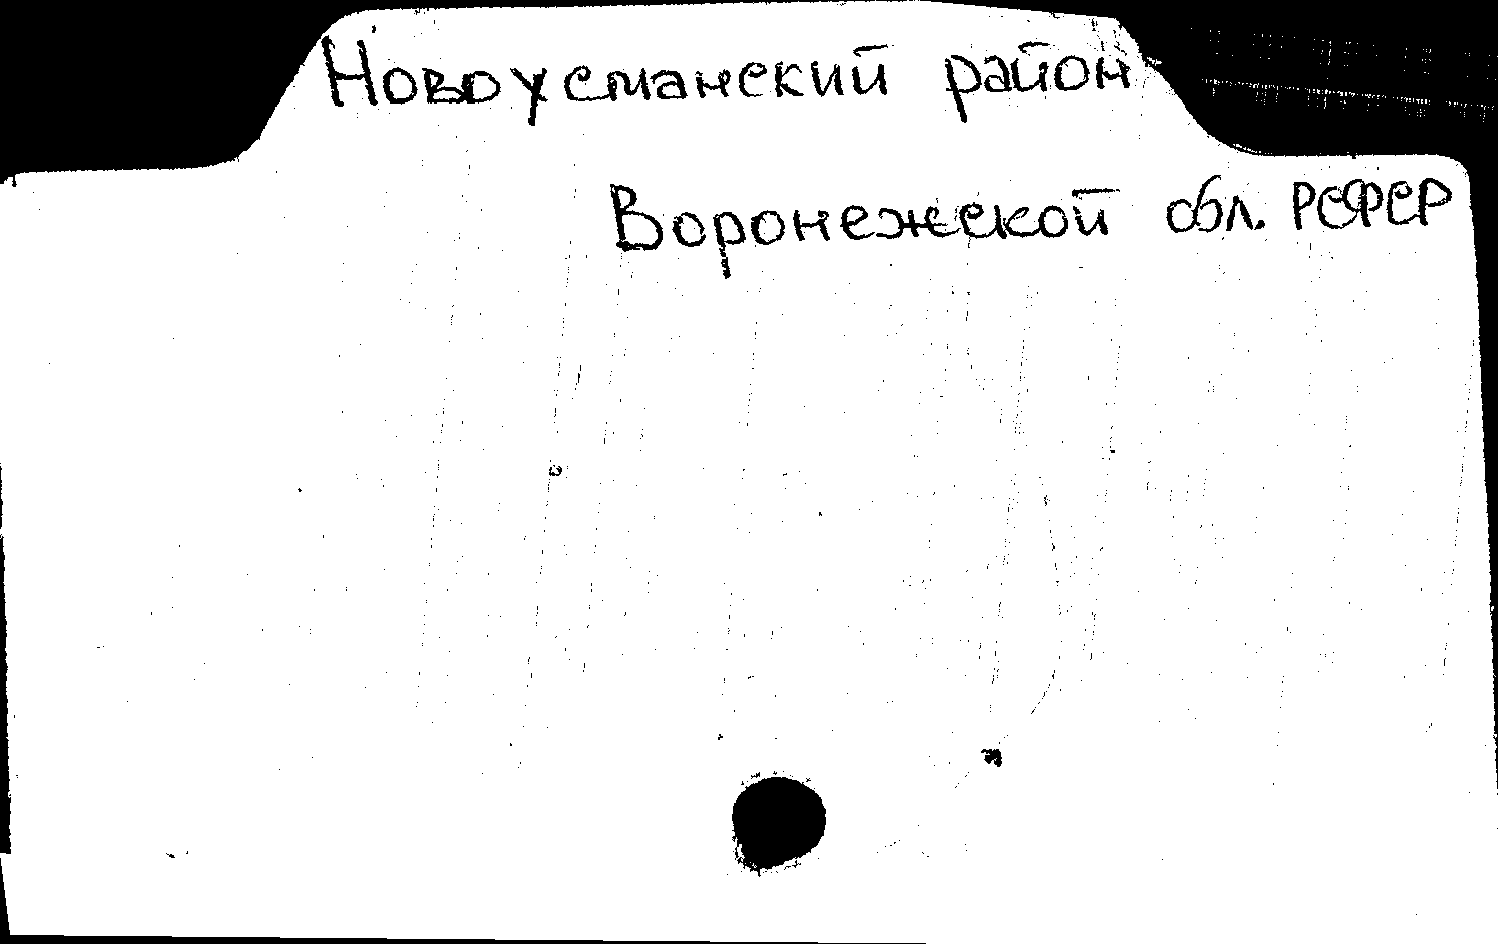 Новоусманский район
Воронежской обл. РСФСР